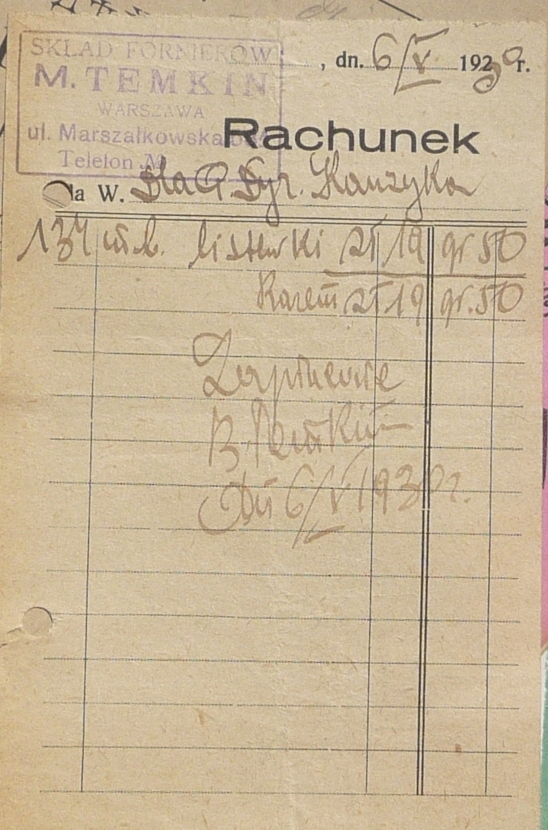 SKŁAD FORNIERÓW
M. TEMKIN
WARSZAWA
ul. Marszałkowska
Telefon
, dn. 6/V 1930 r.
Rachunek
la W. Dyr.
134 m.b. listewki zł 19 gr. 50
Razem zł 19 gr. 50
B. Temkin
Dn 6/V 1930 r.